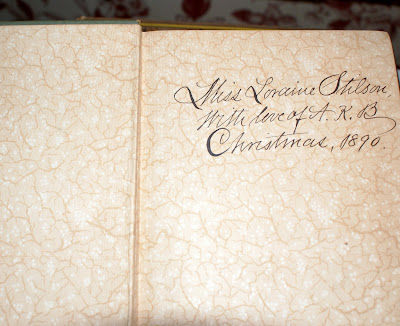 Miss Loraine Stilson
With love of A. K. B
Christmas, 1890.